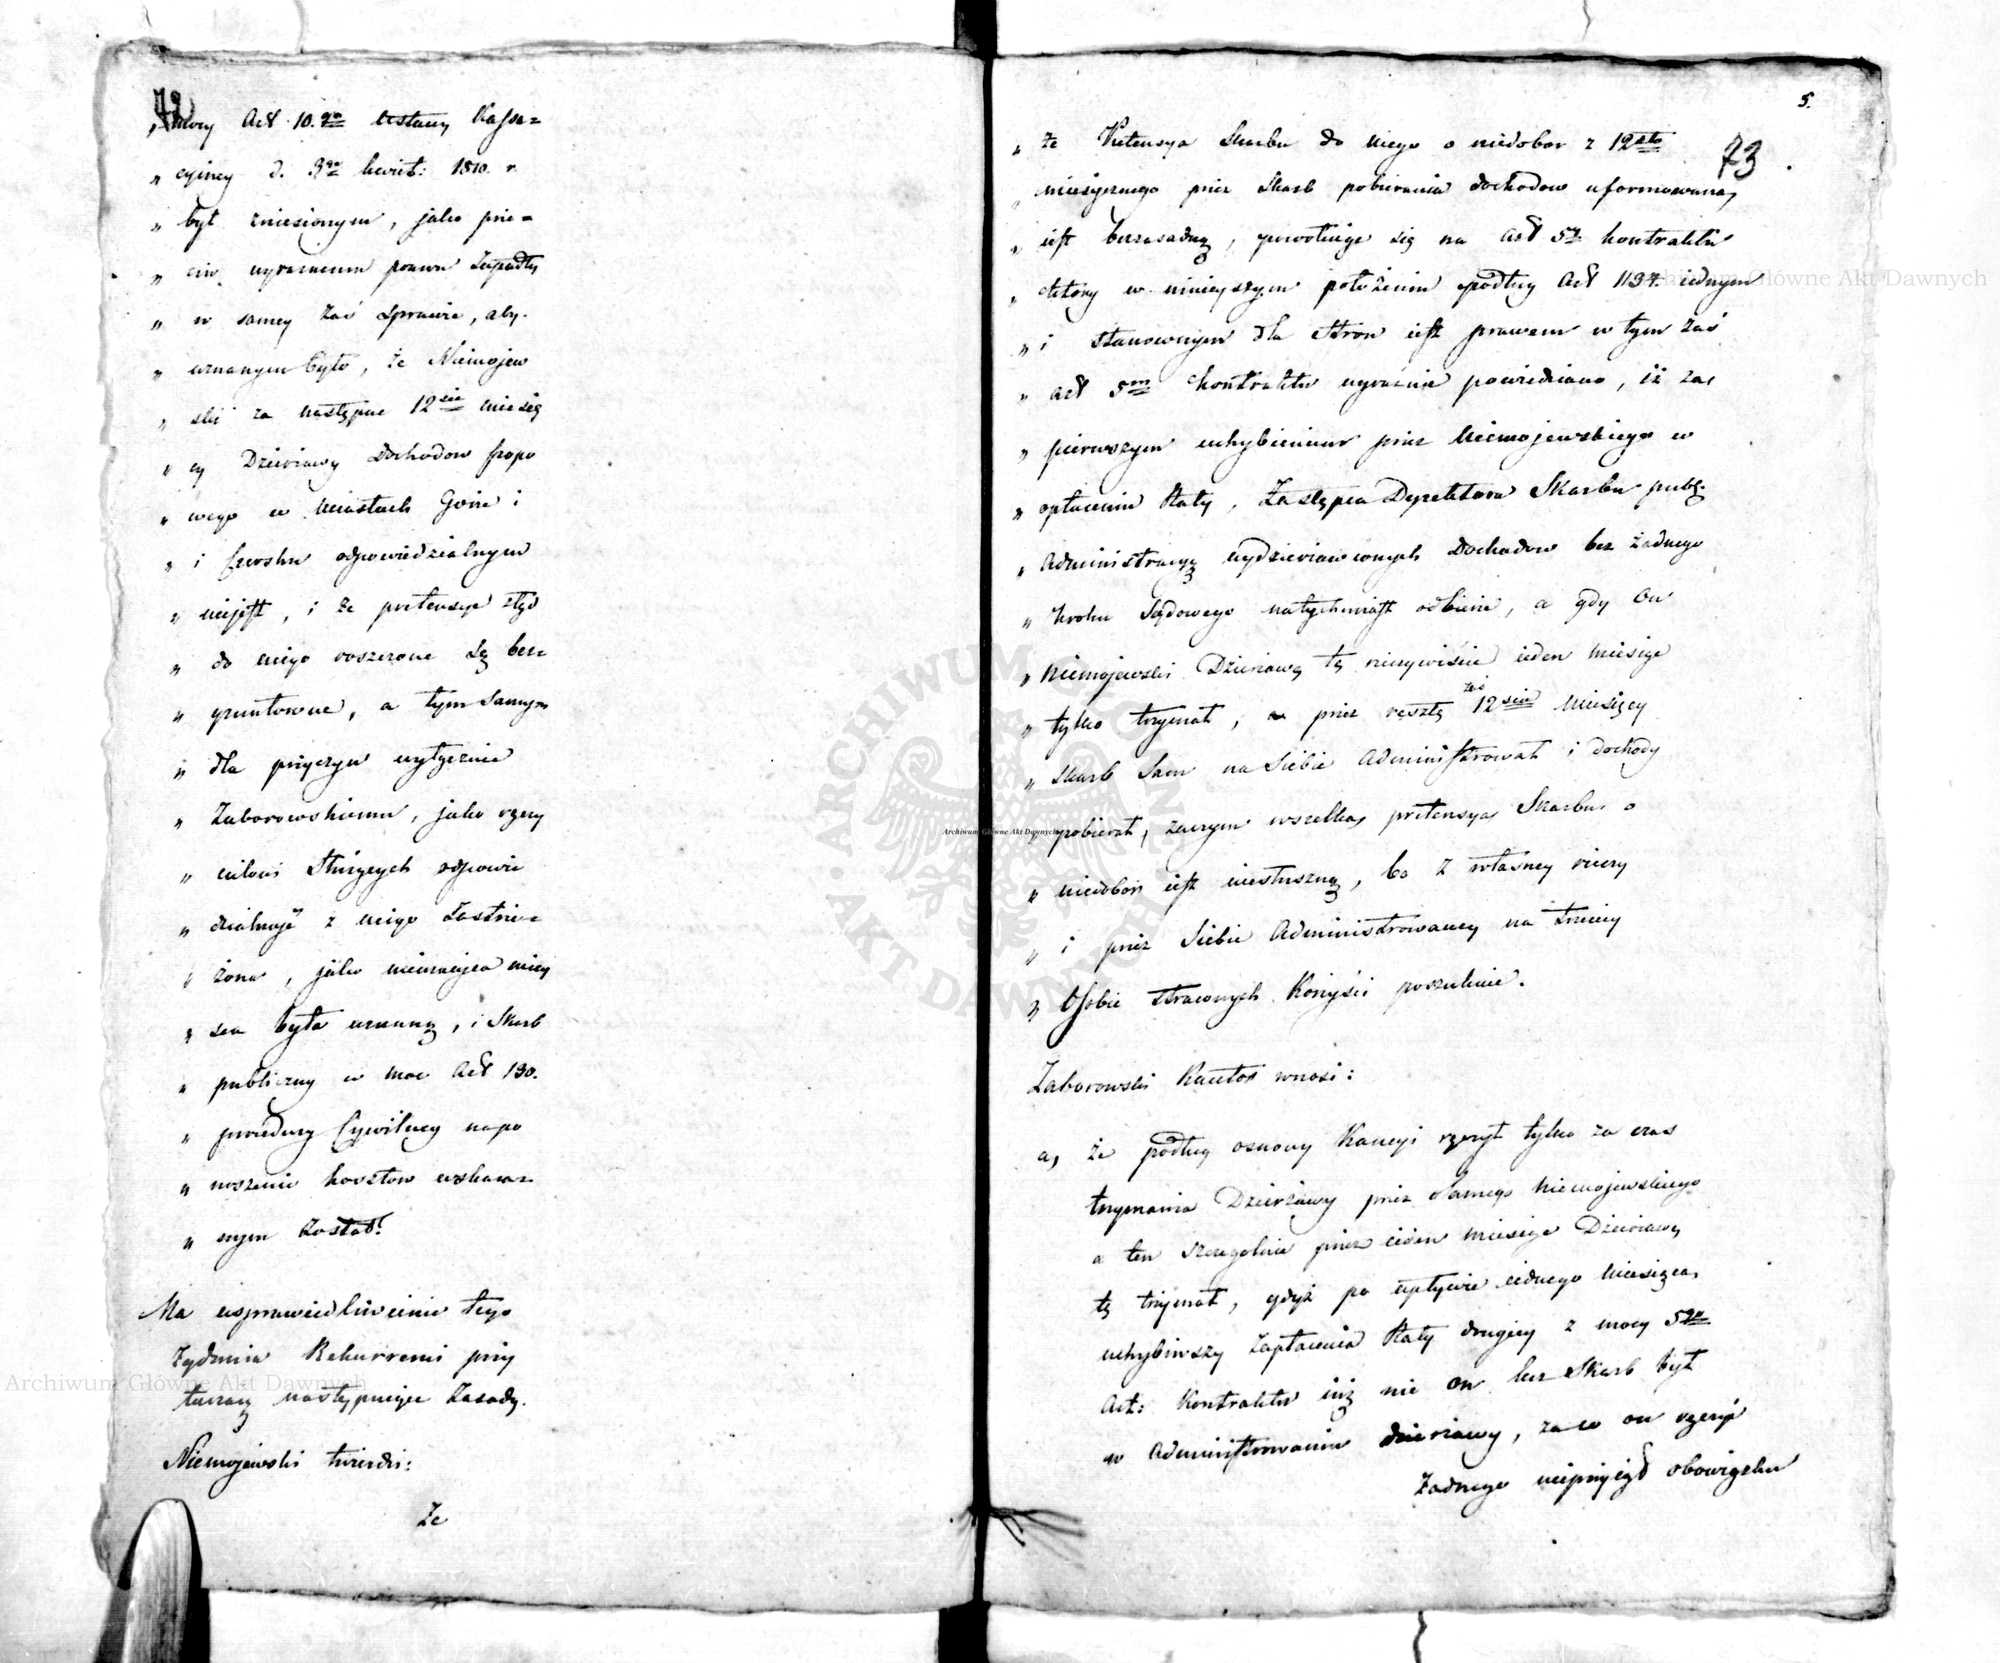 72
„ mocy Art 10.go Ustawy Kassa=
„ cyiney d. 3go kwiet: 1810. r.
„ był zniesionym, jako prze=
„ ciw wyraznemu prawu Zapadły
„ w samey zaś Sprawie, aby
„ uznanym było, że Niemojew
„ ski za następne 12ście miesię
„ cy Dzierżawy Dochodow
„ wego w Miastach Gorze i
„ i odpowiedzialnym
„ niejest, i że pretensye ztąd
„ do niego roszczone są bez
„ gruntowne, a tym samym
„ dla przyczyn wytycznie
„ Zaborowskiemu, jako ręczy
„ cielowi służących odpowie
„ dzialność z niego zastrze=
„ żona, jako niemaiąca miey
„ sca była uznaną, i Skarb
„ publiczny w moc Art 130.
„ procedury Cywilney napo
„ noszenie kosztow wskaza=
„ nym został.
Na usprawiedliwienie tego
Żądania Rekurrenci przy
taczaią następuiące Zasady.
Niemojewski twierdzi:
Że
5.
73
„ że Pretensya Skarbu do niego o niedobor z 12sto
„ miesięcznego przez Skarb pobierania dochodow uformowana,
„ iest bezzasadną, powołuie się na Art 5ty kontraktu
„ ktory w ninieyszym położeniu podług Art 1134. iednym
„ i stanownym dla Stron iest prawem w tym zaś
„ Art 5m Kontraktu wyraźnie powiedziano, iż za
„ pierwszym uchybieniem przez Niemojewskiego w
„ opłaceniu Raty, Zastępca Dyrektora Skarbu publ:
„ Administracyą wydzierżawionych Dochodow bez żadnego
„ kroku Sądowego natychmiast odbierze, a gdy On
„ Niemojewski Dzierżawę tę rzeczywiście ieden miesiąc
„ tylko trzymał, a przez resztę zaś 12ście Miesięcy
„ Skarb sam na Siebie Administrował i dochody
„ pobierał, zaczym wszelka pretensya Skarbu o
„ niedobor iest niesłuszną, bo z własney rzeczy
„ i przez Siebie Administrowaney na trzeciey
„ Osobie straconych Korzyści poszukuie.
Zaborowski Kautor wnosi:
a, że podług osnowy Kaucyi ręczył tylko za czas
trzymania Dzierżawy przez samego Niemojewskiego
a ten szczegolnie przez ieden miesiąc Dzierżawę
tę trzymał, gdyż po upływie iednego Miesiąca,
uchybiwszy Zapłacenia Raty drugiey z mocy 5go
Art: Kontraktu iuż nie on lecz Skarb był
w Administrowaniu dzierżawy, za co on ręcząc
żadnego nieprzyiął obowiązku